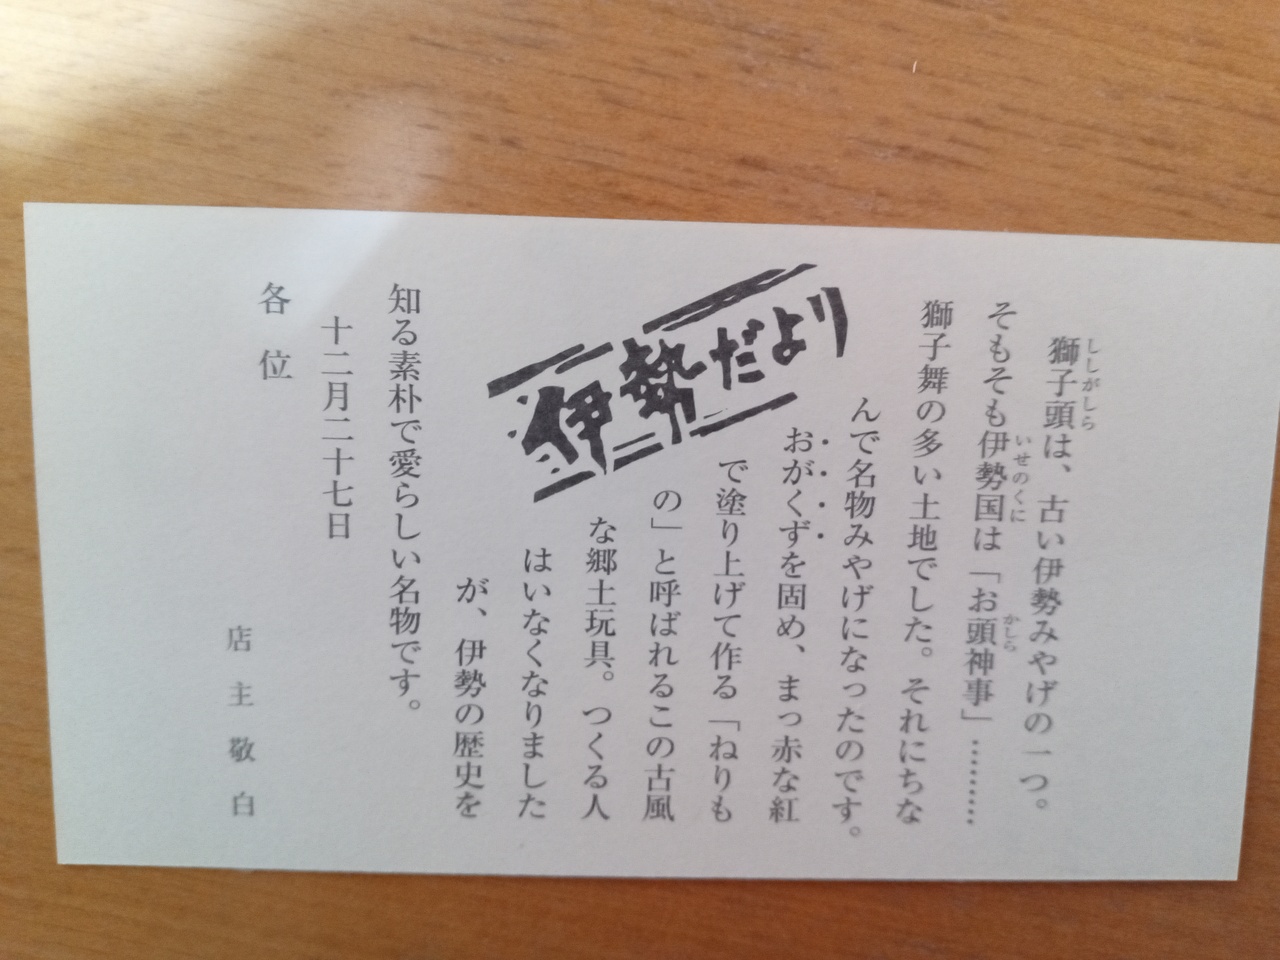 獅子頭は、古い伊勢みやげの一つ。
ししがしら
そもそも伊勢国は「お頭神事」………
いせのくに
かしら
獅子舞の多い土地でした。それにちな
んで名物みやげになったのです。
おがくずを固め、まっ赤な紅
で塗り上げて作る「ねりも
の」と呼ばれるこの古風
な郷土玩具。つくる人
はいなくなりました
が、伊勢の歴史を
知る素朴で愛らしい名物です。
伊勢だより
十二月二十七日
各位
店主敬白